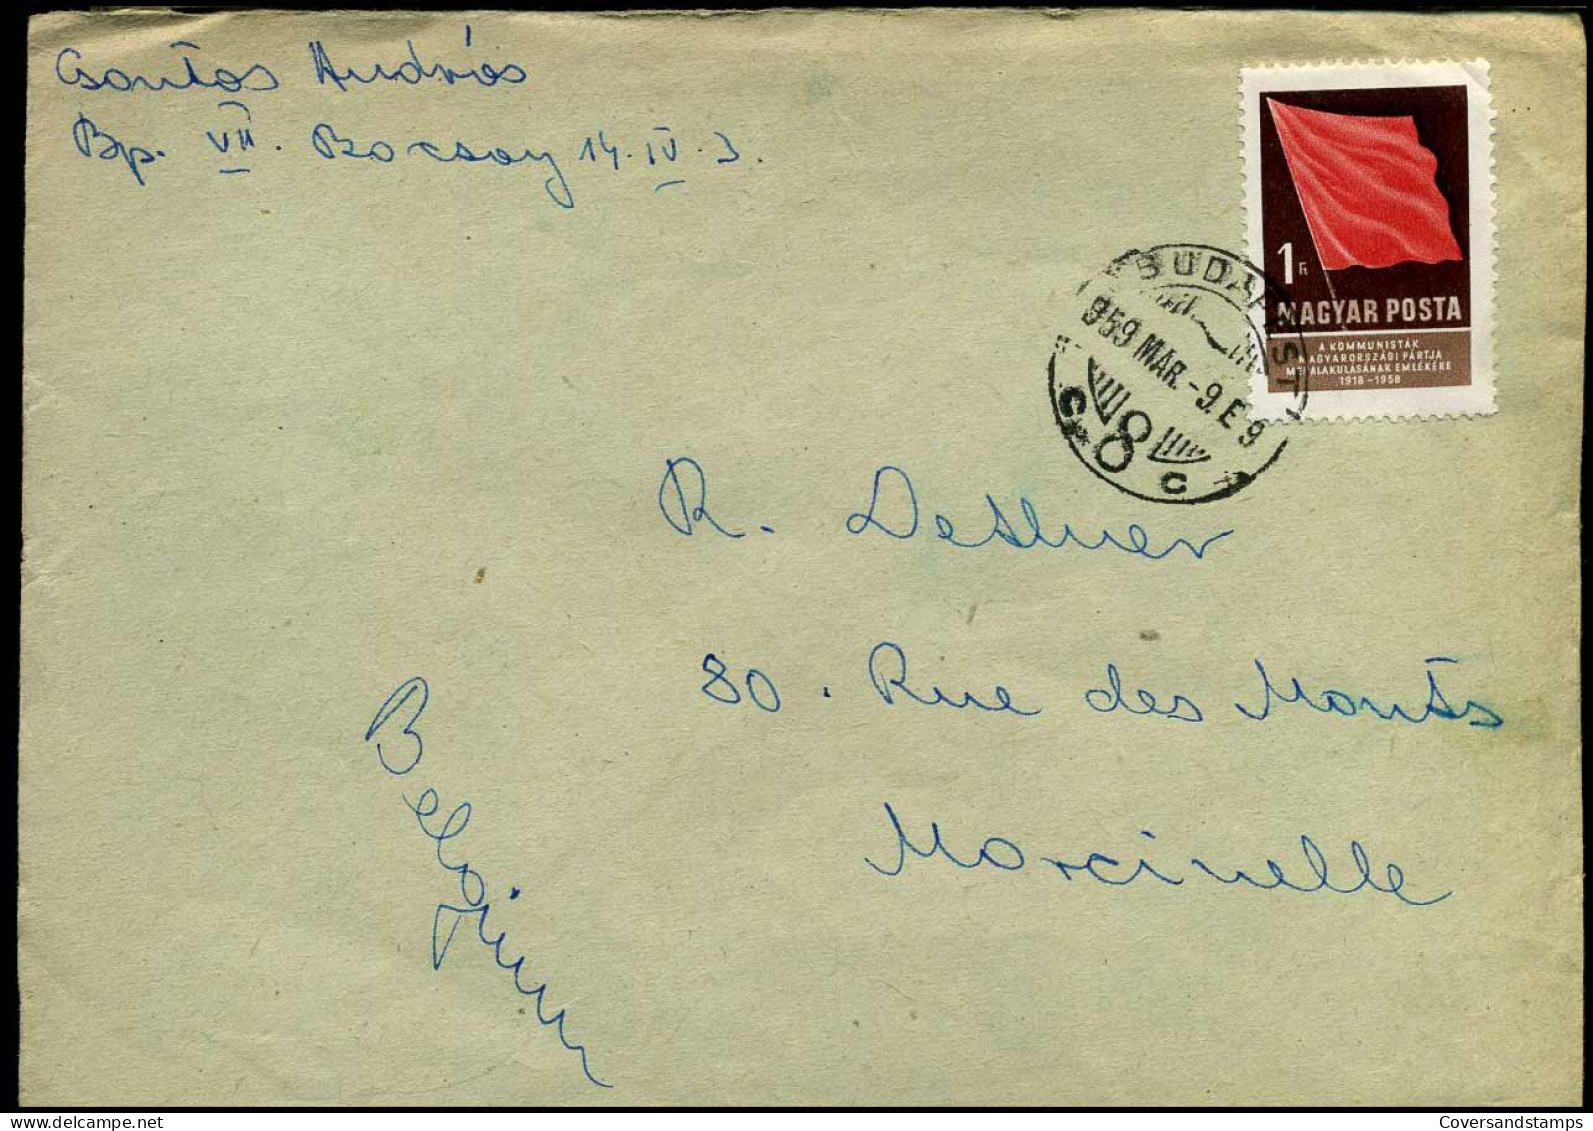 Csontos András
Bp. VII. Rocsay 14. IV. 3.
1 Ft
MAGYAR POSTA
A KOMMUNISTÁK
MAGYARORSZÁGI PÁRTJA
MEGALAKULÁSÁNAK EMLÉKÉRE
1918-1958
BUDAPEST
959 MAR.-9.E9
C 8 C
R.
80. Rue des Monts
Marcinelle
Belgium
Coversandstamps